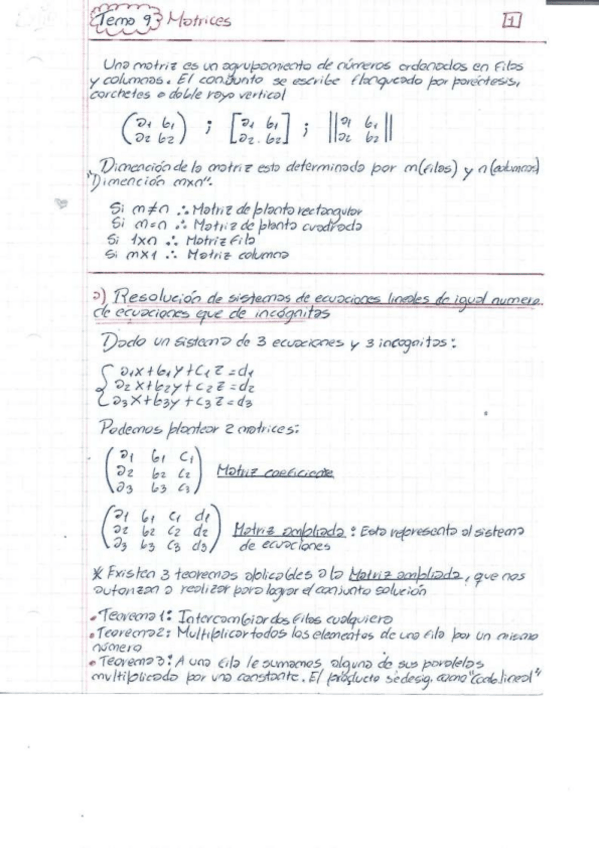 Tema 9: Matrices 1
Una matriz es un agrupamiento de números ordenados en filas
y columnas. El conjunto se escribe flanqueado por paréntesis,
corchetes o doble raya vertical
(a1 b1 ; [a1 b1 ; ||a1 b1||
a2 b2) a2 b2] ||a2 b2||
Dimención de la matriz esta determinada por m(filas) y n(columnas)
"Dimención mxn".
Si m≠n ∴ Matriz de planta rectangular
Si m=n ∴ Matriz de planta cuadrada
Si 1xn ∴ Matriz fila
Si mx1 ∴ Matriz columna
a) Resolución de sistemas de ecuaciones lineales de igual numero
de ecuaciones que de incógnitas
Dado un sistema de 3 ecuaciones y 3 incognitas:
a1x+b1y+c1z=d1
a2x+b2y+c2z=d2
a3x+b3y+c3z=d3
Podemos plantear 2 matrices:
a1 b1 c1
a2 b2 c2 Matriz coeficiente
a3 b3 c3
a1 b1 c1 d1
a2 b2 c2 d2 Matriz ampliada: Esta representa al sistema
a3 b3 c3 d3 de ecuaciones
* Existen 3 teoremas aplicables a la Matriz ampliada, que nos
autorizan a realizar para lograr el conjunto solución
• Teorema 1: Intercambiar dos filas cualquiera
• Teorema 2: Multiplicar todos los elementos de una fila por un mismo
número
• Teorema 3: A una fila le sumamos alguna de sus paralelas
multiplicada por una constante. El producto se desig. como